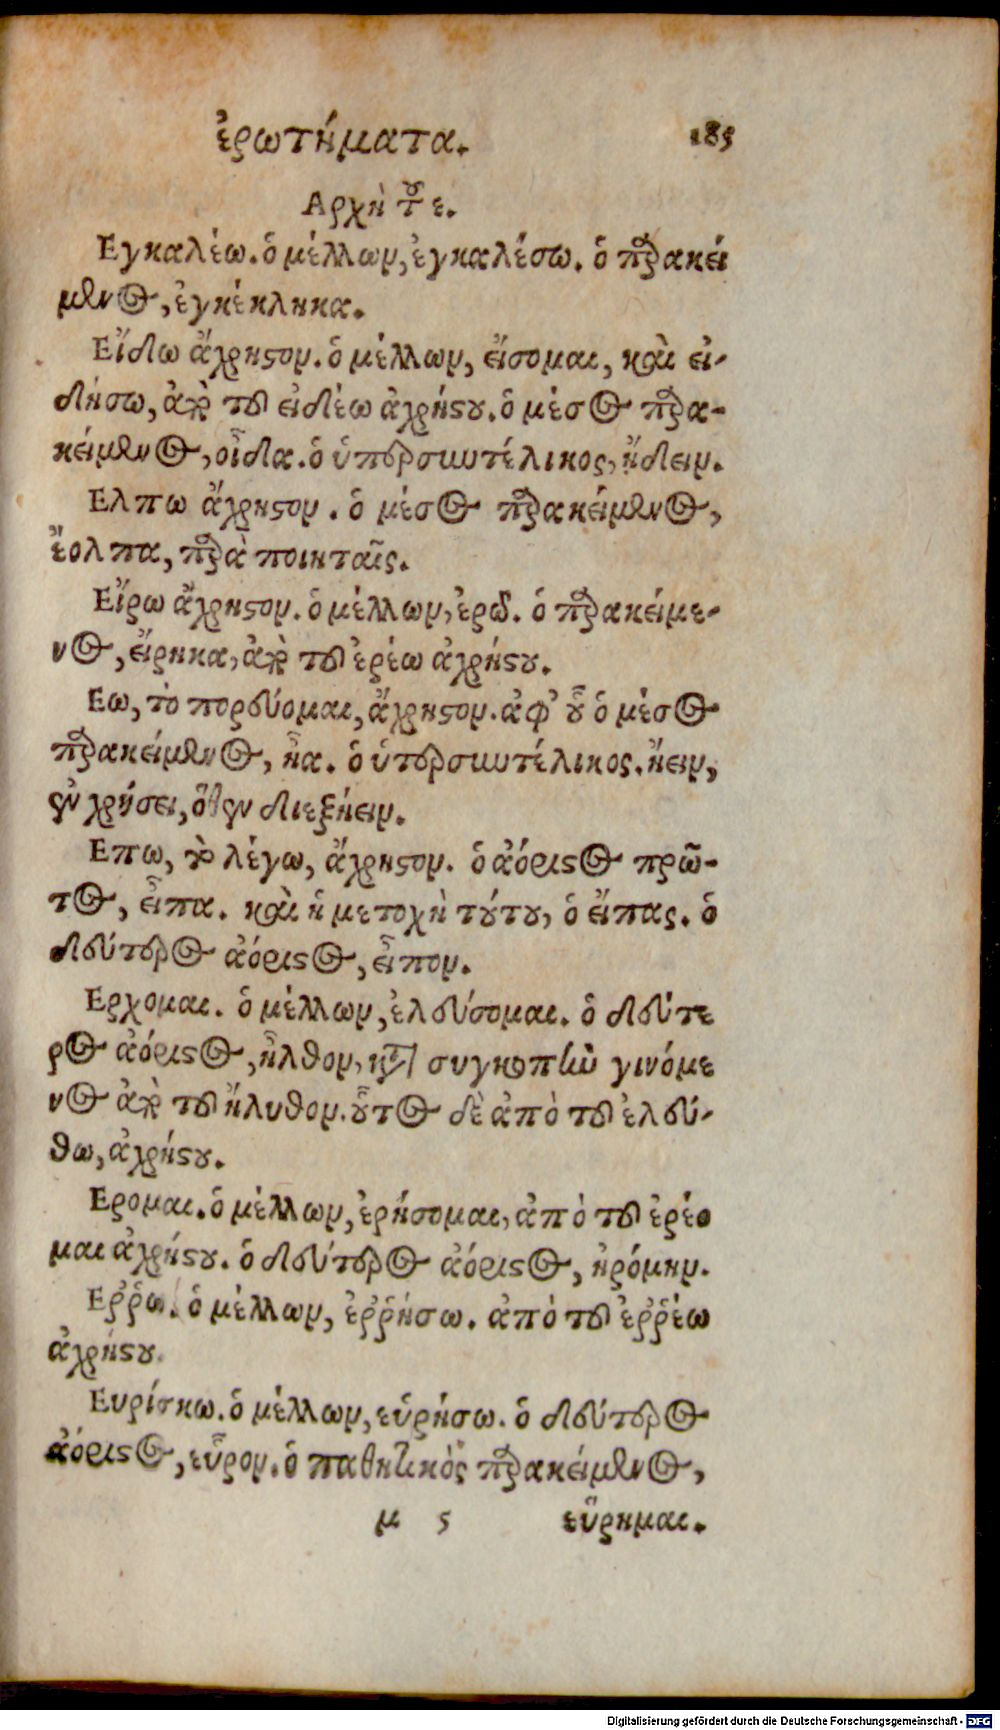 ἐρωτήματα. 185
Αρχὴ τοῦ ε.
Εγκαλέω. ὁ μέλλων, ἐγκαλέσω. ὁ παρακεί
μενος, ἐγκέκληκα.
Εἴδω ἄχρηστον. ὁ μέλλων, εἴσομαι, καὶ εἰ-
δήσω, ἀπὸ τοῦ εἰδέω ἀχρήστου. ὁ μέσος παρα-
κείμενος, οἶδα. ὁ ὑπερσυντέλικος, ᾔδειν.
Ελπω ἄχρηστον. ὁ μέσος παρακείμενος,
ἔολπα, παρὰ ποιηταῖς.
Εἴρω ἄχρηστον. ὁ μέλλων, ἐρῶ. ὁ παρακείμε-
νος, εἴρηκα, ἀπὸ τοῦ ἐρέω ἀχρήστου.
Εω, τὸ πορεύομαι, ἄχρηστον. ἀφ' οὗ ὁ μέσος
παρακείμενος, ἦα. ὁ ὑπερσυντέλικος. ἤειν,
ἐν χρήσει, ὅθεν διεξήειν.
Επω, τὸ λέγω, ἄχρηστον. ὁ ἀόριστος πρῶ-
τος, εἶπα. καὶ ἡ μετοχὴ τούτου, ὁ εἴπας. ὁ
δεύτερος ἀόριστος, εἶπον.
Ερχομαι. ὁ μέλλων, ἐλεύσομαι. ὁ δεύτε
ρος ἀόριστος, ἦλθον, κατὰ συγκοπὴν γινόμε
νος ἀπὸ τοῦ ἤλυθον. οὗτος δὲ ἀπὸ τοῦ ἐλεύ-
θω, ἀχρήστου.
Ερομαι. ὁ μέλλων, ἐρήσομαι, ἀπὸ τοῦ ἐρέο
μαι ἀχρήστου. ὁ δεύτερος ἀόριστος, ἠρόμην.
Εῤῥω. ὁ μέλλων, ἐῤῥήσω. ἀπὸ τοῦ ἐῤῥέω
ἀχρήστου.
Ευρίσκω. ὁ μέλλων, εὑρήσω. ὁ δεύτερος
ἀόριστος, εὗρον. ὁ παθητικὸς παρακείμενος,
μ 5 εὕρημαι.
Digitalisierung gefördert durch die Deutsche Forschungsgemeinschaft - DFG